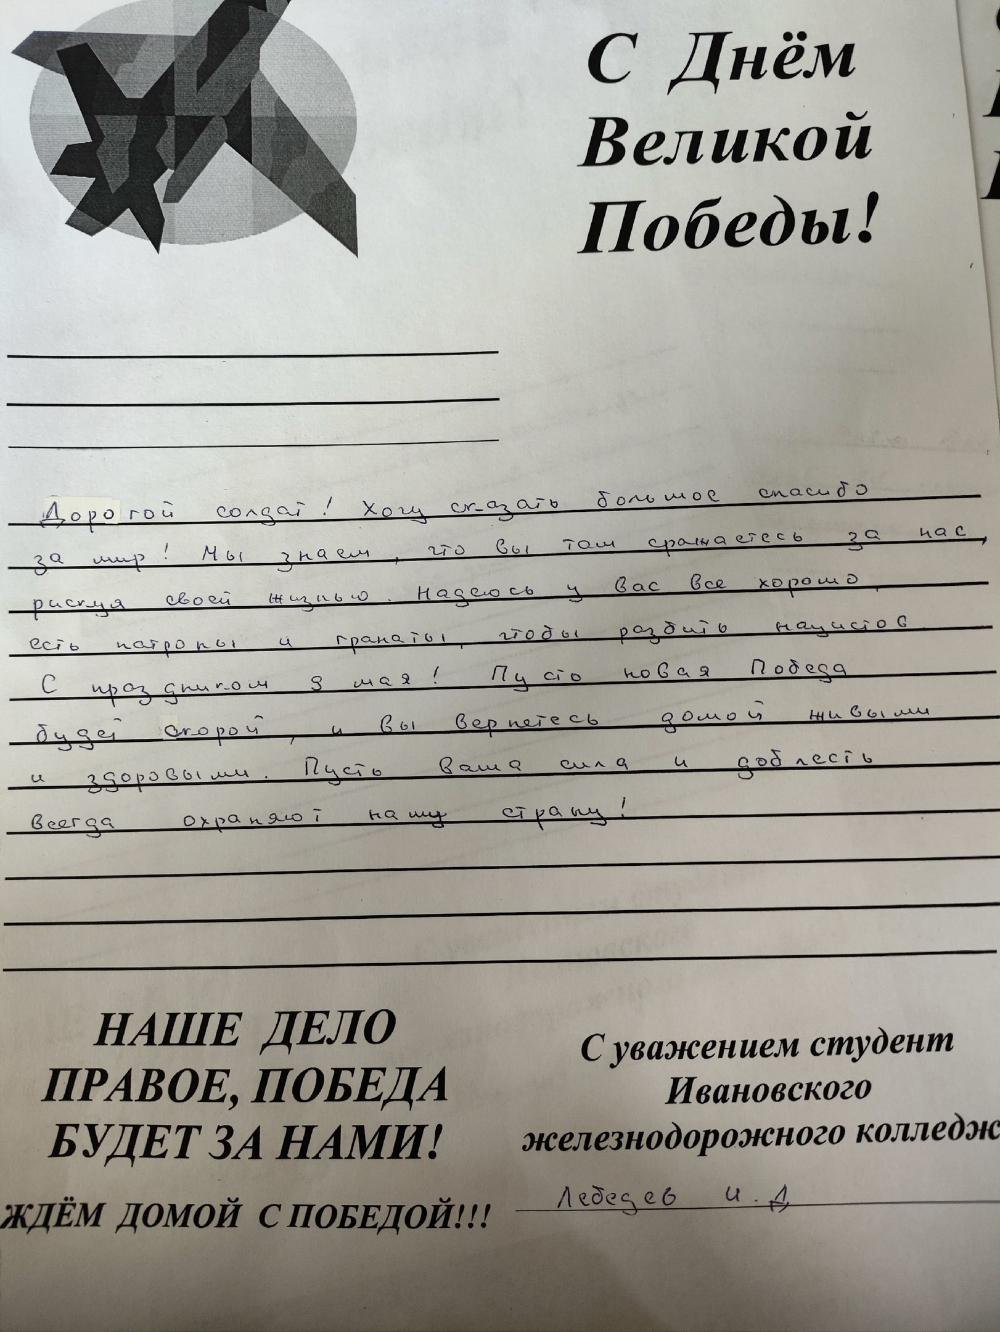 С Днём
Великой
Победы!
Дорогой солдат! Хочу сказать большое спасибо
за мир! Мы знаем, что вы там сражаетесь за нас,
рискуя своей жизнью. Надеюсь у Вас все хорошо,
есть патроны и гранаты, чтобы разбить нацистов.
С праздником 9 мая! Пусть новая Победа
будет скорой, и вы вернетесь домой живыми
и здоровыми. Пусть Ваша сила и доблесть
всегда охраняют нашу страну!
НАШЕ ДЕЛО
ПРАВОЕ, ПОБЕДА
БУДЕТ ЗА НАМИ!
ЖДЁМ ДОМОЙ С ПОБЕДОЙ!!!
С уважением студент
Ивановского
железнодорожного колледж
Лебедев И.Д